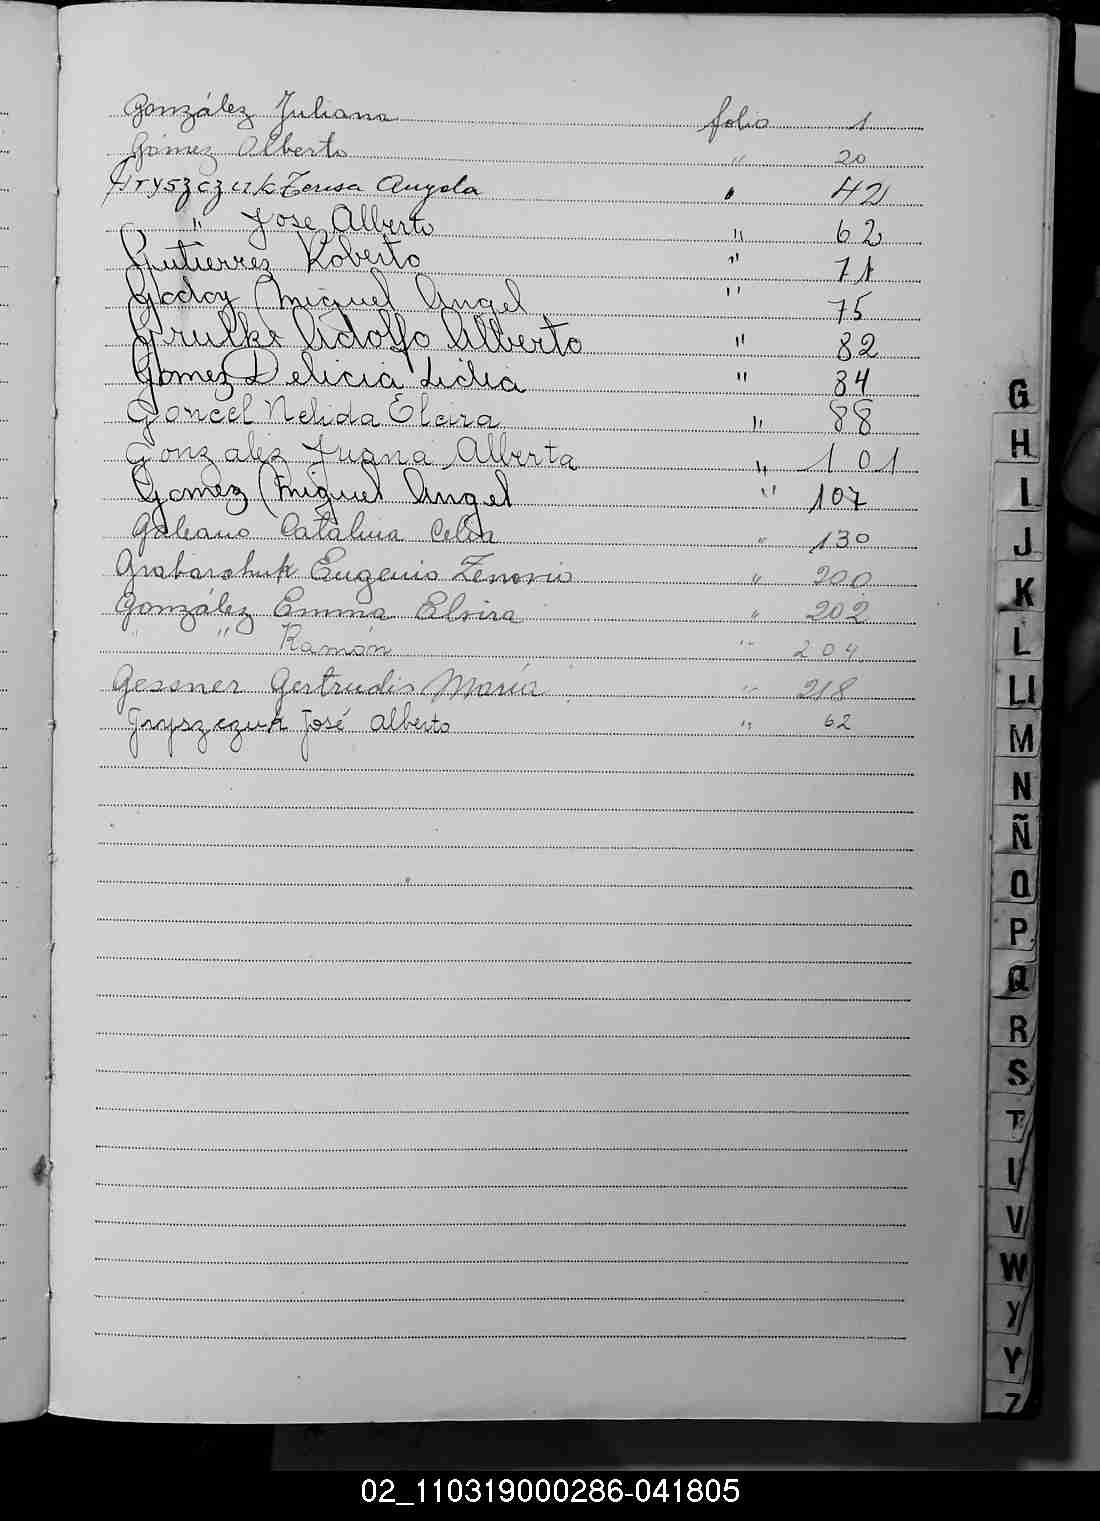 González Juliana folio 1
Gómez Alberto " 20
Gryszczuk Teresa Angela " 42
" José Alberto " 62
Gutierrez Roberto " 71
Godoy Miguel Angel " 75
Grulke Adolfo Alberto " 82
Gomez Delicia Lidia " 84
Goncel Nelida Elcira " 88
Gonzalez Juana Alberta " 101
Gomez Miguel Angel " 107
Galeano Catalina Celia " 130
Grabarchuk Eugenio Zenovio " 200
González Emma Elvira " 202
" " Ramón " 204
Gessner Gertrudis María " 218
Gryszczuk José Alberto " 62
G
H
I
J
K
L
Ll
M
N
Ñ
O
P
Q
R
S
T
I
V
W
Y
Y
Z
02_110319000286-041805